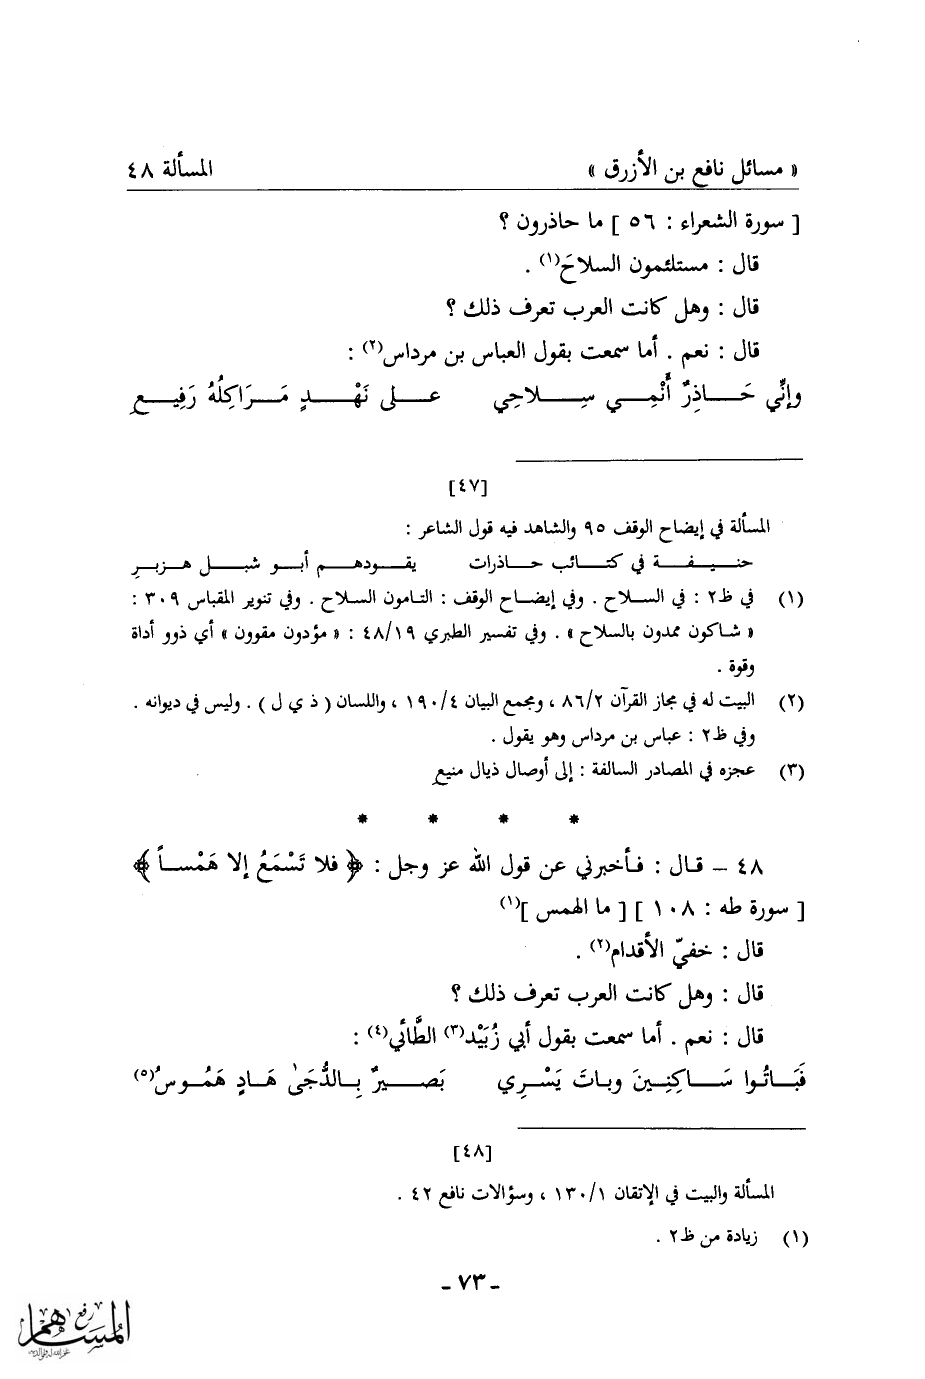 « مسائل نافع بن الأزرق » المسألة ٤٨
[ سورة الشعراء : ٥٦ ] ما حاذرون ؟
قال : مستلئمون السلاحَ(١) .
قال : وهل كانت العرب تعرف ذلك ؟
قال : نعم . أما سمعت بقول العباس بن مرداس(٢) :
وإنِّي حَــاذِرٌ أَنْمِــي سِــلاحِي علــى نَهْــدٍ مَــرَاكِلُهُ رَفِيــعِ
[٤٧]
المسألة في إيضاح الوقف ٩٥ والشاهد فيه قول الشاعر :
حنــيــفــة في كتــائب حــاذرات يقــودهــم أبــو شبــل هــزبــرِ
(١) في ظ٢ : في السلاح . وفي إيضاح الوقف : التامون السلاح . وفي تنوير المقباس ٣٠٩ :
« شاكون ممدون بالسلاح » . وفي تفسير الطبري ٤٨/١٩ : « مؤدون مقوون » أي ذوو أداة
وقوة .
(٢) البيت له في مجاز القرآن ٨٦/٢ ، ومجمع البيان ١٩٠/٤ ، واللسان ( ذ ي ل ) . وليس في ديوانه .
وفي ظ٢ : عباس بن مرداس وهو يقول .
(٣) عجزه في المصادر السالفة : إلى أوصال ذيال منيعِ
* * * *
٤٨ – قال : فأخبرني عن قول الله عز وجل : ﴿ فلا تَسْمَعُ إلا هَمْساً ﴾
[ سورة طه : ١٠٨ ] [ ما الهمس ](١)
قال : خفيّ الأقدام(٢) .
قال : وهل كانت العرب تعرف ذلك ؟
قال : نعم . أما سمعت بقول أبي زُبَيْد(٣) الطَّائي(٤) :
فَبَــاتُوا سَــاكِنِــينَ وباتَ يَسْــرِي بَصــيــرٌ بِــالدُّجَىٰ هَــادٍ هَمُــوسُ(٥)
[٤٨]
المسألة والبيت في الإتقان ١٣٠/١ ، وسؤالات نافع ٤٢ .
(١) زيادة من ظ٢ .
- ٧٣ -
رفع
المساهم